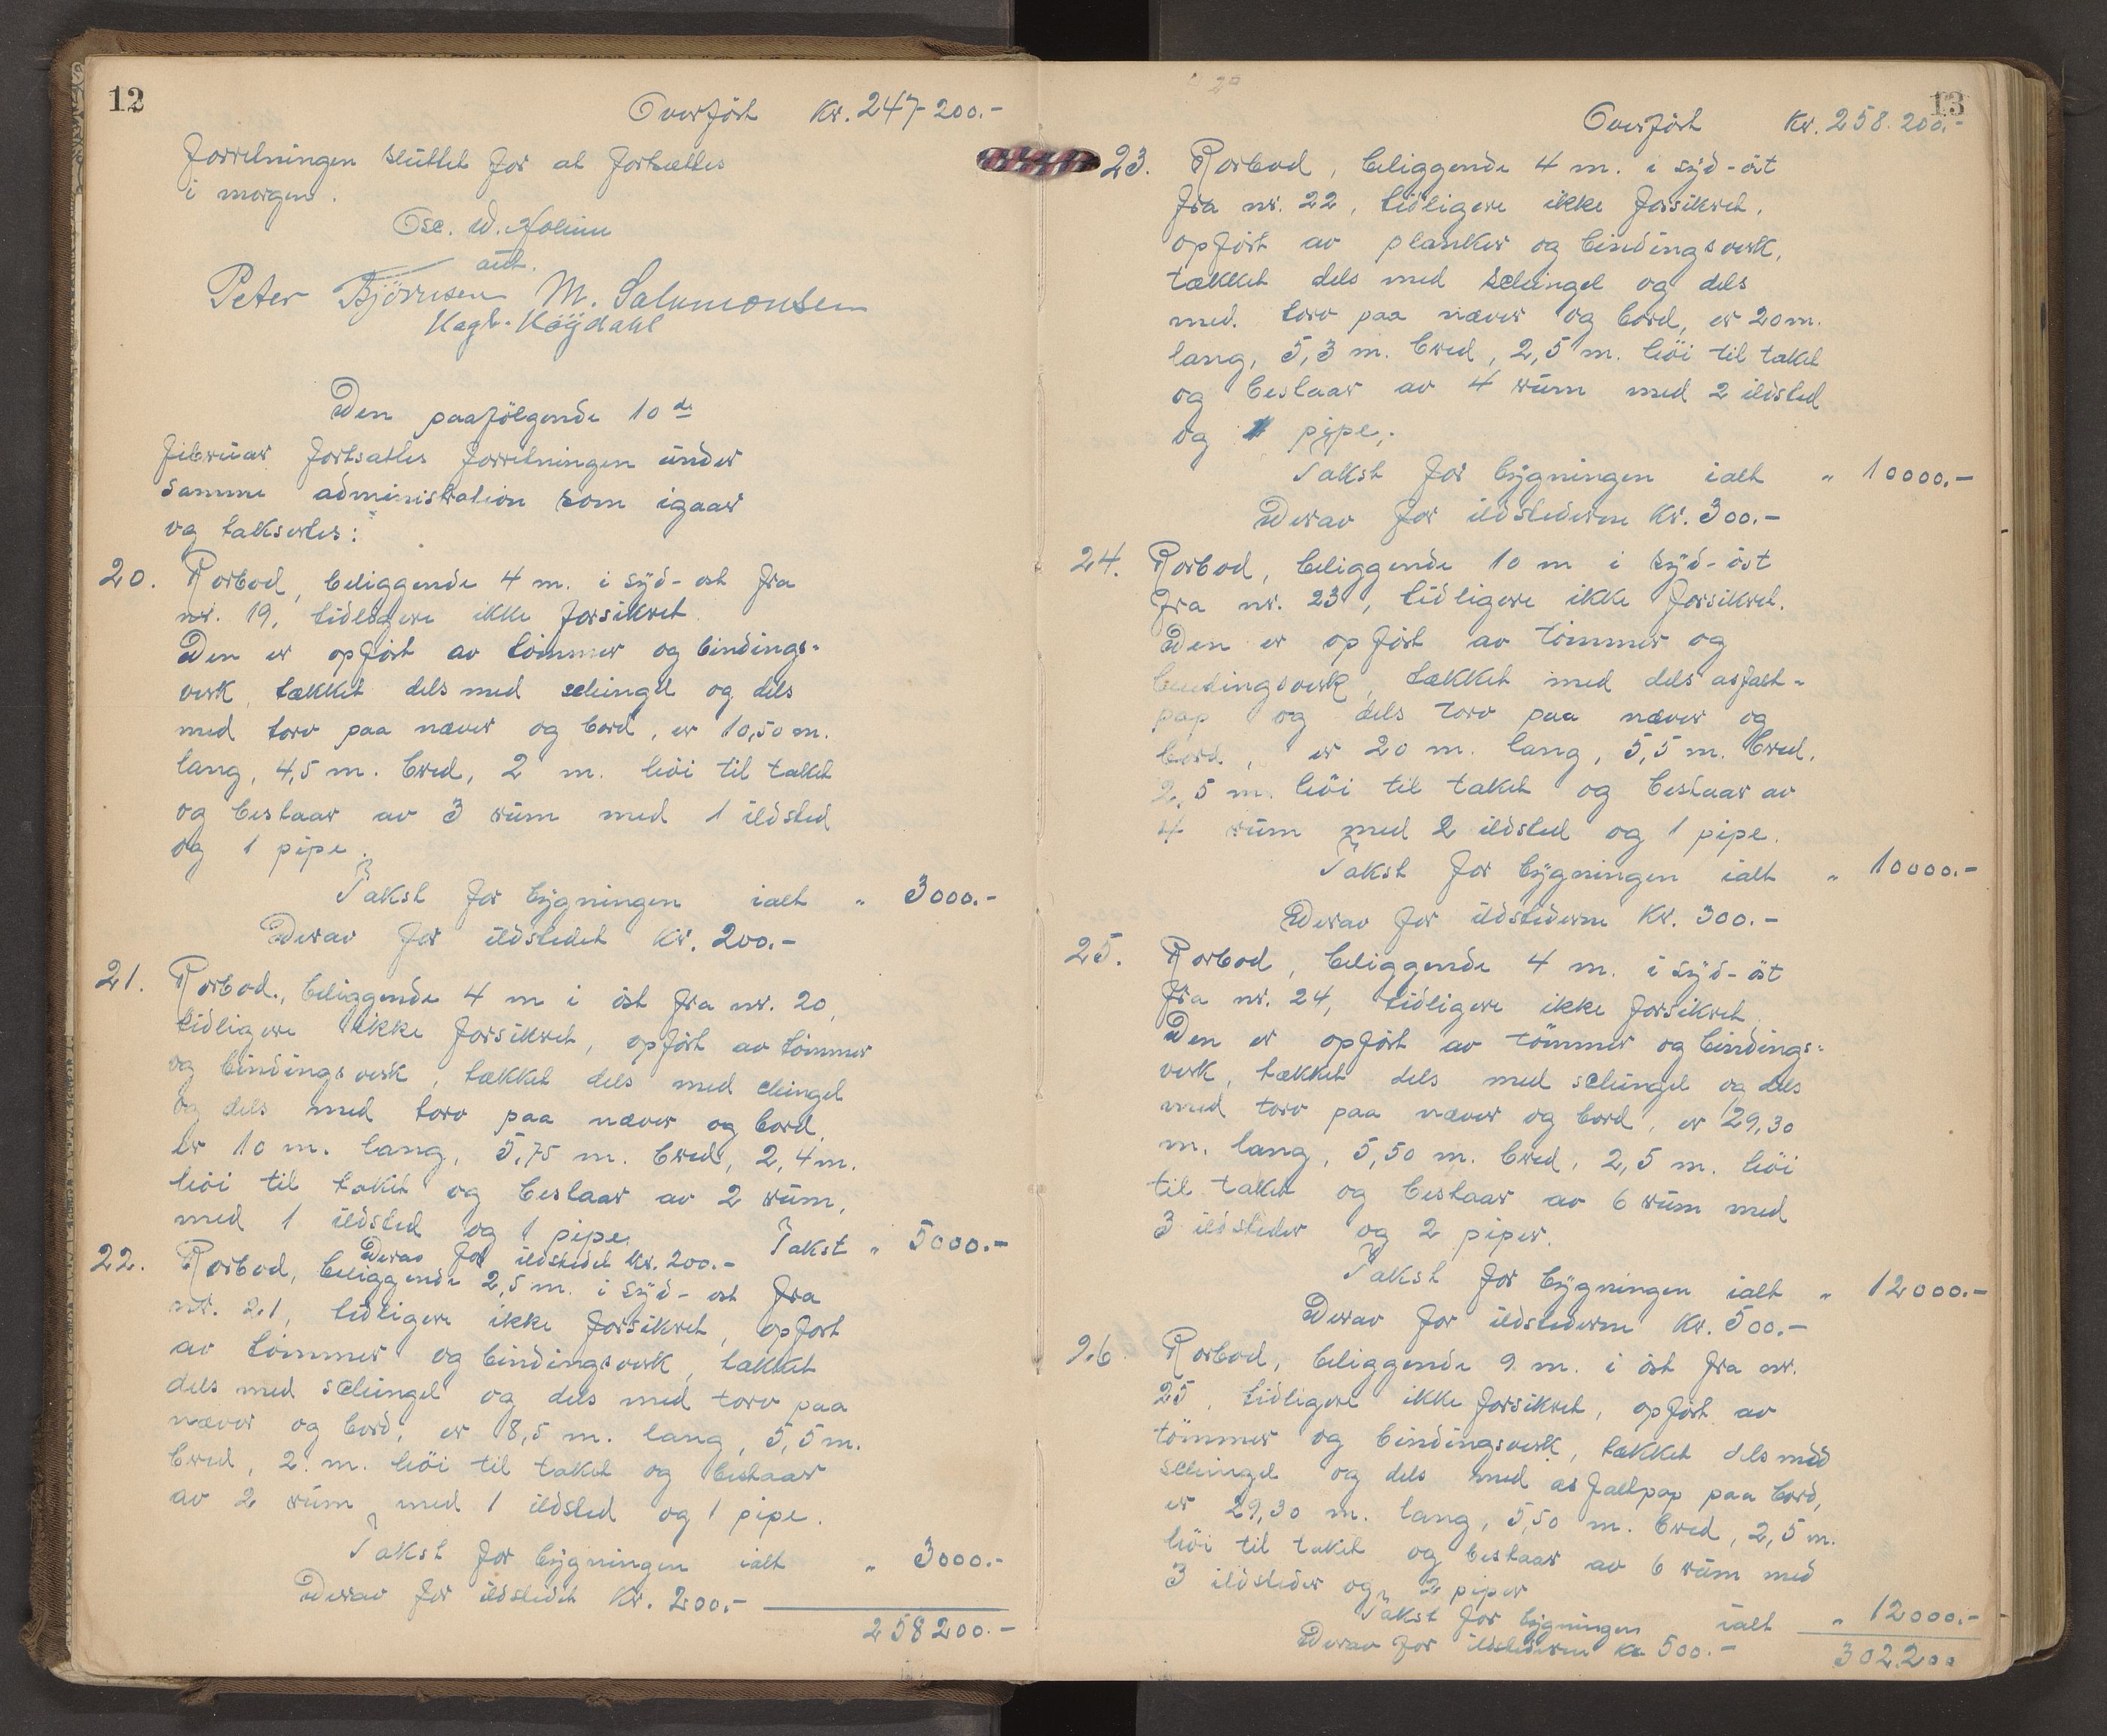 12
Overført Kr. 247 200.-
Forretningen sluttet for at fortsættes
i morgen.
Osc. W.
aut.
Peter Björnsen M. Salumonsen
Hagb. Höydahl
Den paafölgende 10de
februar fortsattes forretningen under
samme administration som igaar
og taksertes:
20. Rorbod, beliggende 4 m. i syd-ost fra
nr. 19, tidligere ikke forsikret.
Den er opført av tömmer og bindings-
verk, tækket dels med schingel og dels
med torv paa næver og bord, er 10,50 m.
lang, 4,5 m. bred, 2 m. höi til taket
og bestaar av 3 rum med 1 ildsted
og 1 pipe.
Takst for bygningen ialt " 3000.-
Derav for ildstedet Kr. 200.-
21. Rorbod., beliggende 4 m i öst fra nr. 20,
tidligere ikke forsikret, opfört av tömmer
og bindingsverk, tækket dels med chingel
og dels med torv paa næver og bord,
er 10 m. lang, 5,75 m. bred, 2,4 m.
höi til taket og bestaar av 2 rum,
med 1 ildsted og 1 pipe. Takst " 5000.-
Derav for ildstedet Kr. 200.-
22. Rorbod, beliggende 2,5 m. i syd-ost fra
nr. 21, tidligere ikke forsikret, opfort
av tömmer og bindingsverk, tækket
dels med schingel og dels med torv paa
næver og bord, er 8,5 m. lang, 5,5 m.
bred, 2 m. höi til taket og bestaar
av 2 rum med 1 ildsted og 1 pipe.
Takst for bygningen ialt " 3000.-
Derav for ildstedet Kr. 200.-
258200.-
13
Overfört Kr. 258.200.-
23. Rorbod, beliggende 4 m. i syd-öst
fra nr. 22, tidligere ikke forsikret,
opfört av planker og bindingsverk,
tækket dels med schingel og dels
med torv paa næver og bord, er 20 m.
lang, 5,3 m. bred, 2,5 m. höi til taket
og bestaar av 4 rum med 2 ildsted
og 1 pipe,.
Takst for bygningen ialt " 10000.-
Derav for ildstederne Kr. 300.-
24. Rorbod, beliggende 10 m i syd-öst
fra nr. 23, tidligere ikke forsikret.
Den er opfört av tömmer og
bindingsverk, tækket med dels asfalt-
pap og dels torv paa næver og
bord, er 20 m. lang, 5,5 m. bred,
2,5 m. höi til taket og bestaar av
4 rum med 2 ildsted og 1 pipe.
Takst for bygningen ialt " 10000.-
Derav for ildstederne Kr. 300.-
25. Rorbod, beliggende 4 m. i syd-öst
fra nr. 24, tidligere ikke forsikret.
Den er opfört av tömmer og bindings-
verk, tækket dels med schingel og dels
med torv paa næver og bord, er 29,30
m. lang, 5,50 m. bred, 2,5 m. höi
til taket og bestaar av 6 rum med
3 ildsteder og 2 piper.
Takst for bygningen ialt " 12000.-
Derav for ildstederne Kr. 500.-
26. Rorbod, beliggende 9 m. i öst fra nr.
25, tidligere ikke forsikret, opfört av
tömmer og bindingsverk, tækket dels med
schingel og dels med asfaltpap paa bord,
er 29,30 m. lang, 5,50 m. bred, 2,5 m.
höi til taket og bestaar av 6 rum med
3 ildsteder og 2 piper
Takst for bygningen ialt " 12000.-
Derav for ildstederne Kr 500.-
302.200